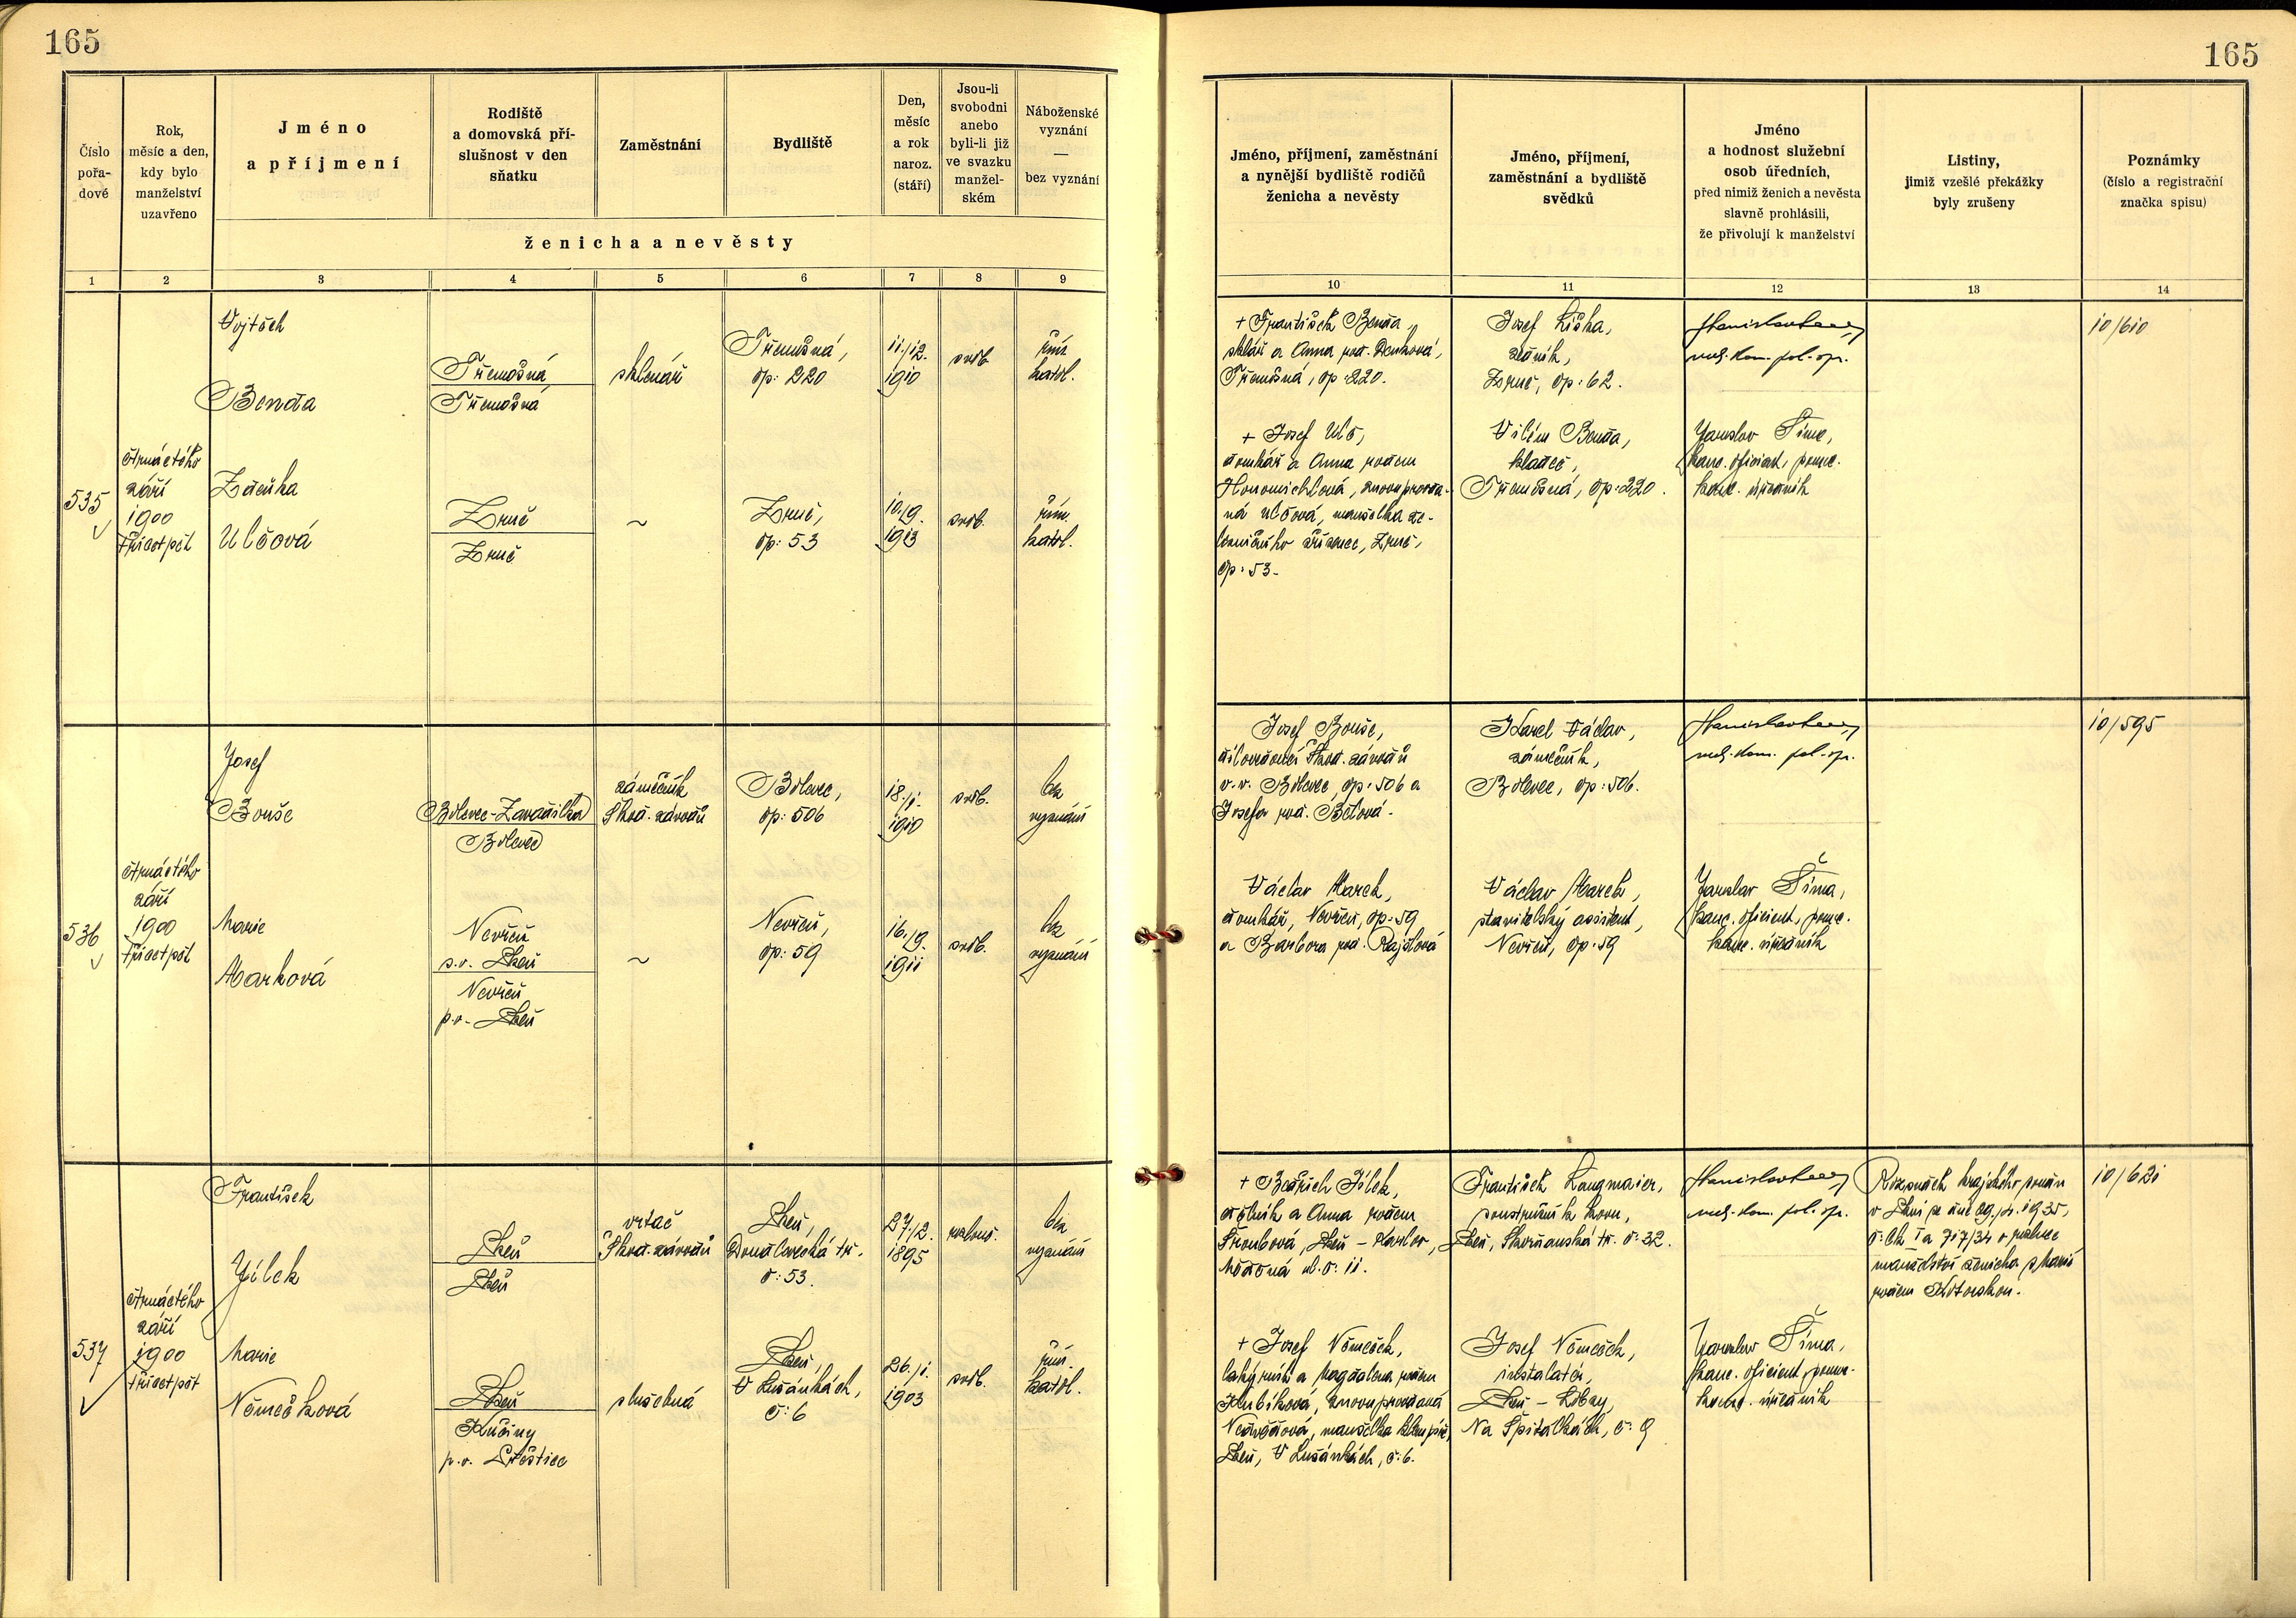 165
165
Číslo
pořa-
dové
Rok,
měsíc a den,
kdy bylo
manželství
uzavřeno
Jméno
a příjmení
Rodiště
a domovská pří-
slušnost v den
sňatku
Zaměstnání
Bydliště
Den,
měsíc
a rok
naroz.
(stáří)
Jsou-li
svobodni
anebo
byli-li již
ve svazku
manžel-
ském
Náboženské
vyznání
—
bez vyznání
ženicha a nevěsty
1 2 3 4 5 6 7 8 9
Jméno, příjmení, zaměstnání
a nynější bydliště rodičů
ženicha a nevěsty
Jméno, příjmení,
zaměstnání a bydliště
svědků
Jméno
a hodnost služební
osob úředních,
před nimiž ženich a nevěsta
slavně prohlásili,
že přivolují k manželství
Listiny,
jimiž vzešlé překážky
byly zrušeny
Poznámky
(číslo a registrační
značka spisu)
10 11 12 13 14
535
čtrnáctého
září
1900
třicetpět
Vojtěch
Benda
Třemošná
Třemošná
sklenář
Třemošná,
čp: 220
11./12.
1910
svob.
řím.
katol.
Zdeňka
Ulčová
Zruč
Zruč
~
Zruč,
čp: 53
10./9.
1913
svob.
řím.
katol.
+ František Benda,
sklář a Anna rod. Denková,
Třemošná, čp: 220.
+ Josef Ulč,
domkář a Anna rodem
Honomichlová, znovuprovda-
ná Ulčová, manželka že-
lezničního zřízence, Zruč,
čp: 53.
Josef Liška,
zedník,
Zruč, čp: 62.
Vilém Benda,
kladeč,
Třemošná, čp: 220.
pol.
Jaroslav Šíma,
kanc. oficiant, pomc.
kanc. úředník
10/610
536
čtrnáctého
září
1900
třicetpět
Josef
Bouše
Bolevec-Zavadilka
Bolevec
zámečník
Škod. závodů
Bolevec,
čp: 506
18./1.
1910
svob.
bez
vyznání
Marie
Marková
Nevřeň
p.o. Plzeň
Nevřeň
p.o. Plzeň
~
Nevřeň,
čp: 59
16./9.
1911
svob.
bez
vyznání
Josef Bouše,
dílovedoucí Škod. závodů
v.v. Bolevec, čp: 506 a
Josefa rod. Bělová.
Václav Marek,
domkář, Nevřeň, čp: 59
a Barbora rod. Rajtlová
Karel Václav,
zámečník,
Bolevec, čp: 506.
Václav Marek,
stavitelský assistent,
Nevřeň, čp: 59
pol.
Jaroslav Šíma,
kanc. oficient, pomc.
kanc. úředník
10/595
537
čtrnáctého
září
1900
třicetpět
František
Jílek
Plzeň
Plzeň
vrtač
Škod. závodů
Plzeň,
Doudlevecká tř.
č: 53.
27./2.
1895
rozlouč.
bez
vyznání
Marie
Němečková
Plzeň
Kučiny
p.o. Létiny
služebná
Plzeň,
V Lušánkách,
č: 6
26./1.
1903
svob.
řím.
katol.
+ Bedřich Jílek,
dělník a Anna rodem
Troubová, Plzeň - Karlov,
Modrá ul. č: 11.
+ Josef Němeček,
lakýrník a Magdalena rodem
Kubíková, znovuprovdaná
manželka klempíře,
Plzeň, V Lušánkách, č: 6.
František Langmaier,
soustružník kovu,
Plzeň, Skvrňanská tř. č: 32.
Josef Němeček,
instalatér,
Plzeň - Lobzy,
Na Špitálkách, č: 9
pol.
Jaroslav Šíma,
kanc. oficient, pomc.
kanc. úředník
Rozsudek krajského soudu
v Plzni ze dne 1935,
č: Ck Ia 717/34 o rozluce
manželství ženicha s Marií
rodem
10/621